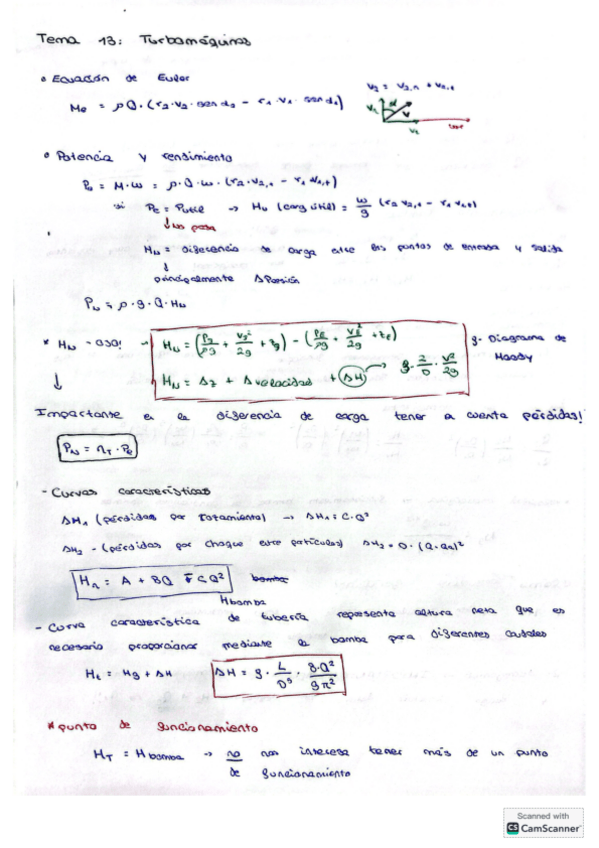 Tema 13: Turbomáquinas
• Ecuación de Euler
Me = ρQ·(r2·v2·sen α2 – r1·v1·sen α1)
v2 = v2,n + v2,t
• Potencia y rendimiento
Pu = M·ω = ρ·Q·ω·(r2·v2,t – r1 v1,t)
si Pe = Putil → Hu (carg útil) = ω/g (r2 v2,t – r1 v1,t)
↓ no pasa
HN = diferencia de carga entre los puntos de entrada y salida
↓
principalmente Δ Presión
PN = ρ·g·Q·HN
* HN – OJO! → HN = (Ps/ρg + vs²/2g + zs) – (Pe/ρg + ve²/2g + ze)
g- Diagrama de Moody
HN = Δz + Δvelocidad + ΔH → f·L/D·v²/2g
↓
Importante en la diferencia de carga tener en cuenta pérdidas!
PN = ηT·Pe
- Curvas características
ΔH1 (pérdidas por rozamiento) → ΔH1 = C·Q²
ΔH2 – (pérdidas por choque entre partículas) ΔH2 = D·(Q-Qn)²
Hn = A + BQ ∓ CQ²
Hbomba
- Curva característica de tubería representa altura neta que es
necesario proporcionar mediante la bomba para diferentes caudales
Ht = Hg + ΔH ΔH = f·L/D⁵·8·Q²/gπ²
* punto de funcionamiento
HT = Hbomba → no nos interesa tener más de un punto
de funcionamiento
Scanned with
CS CamScanner